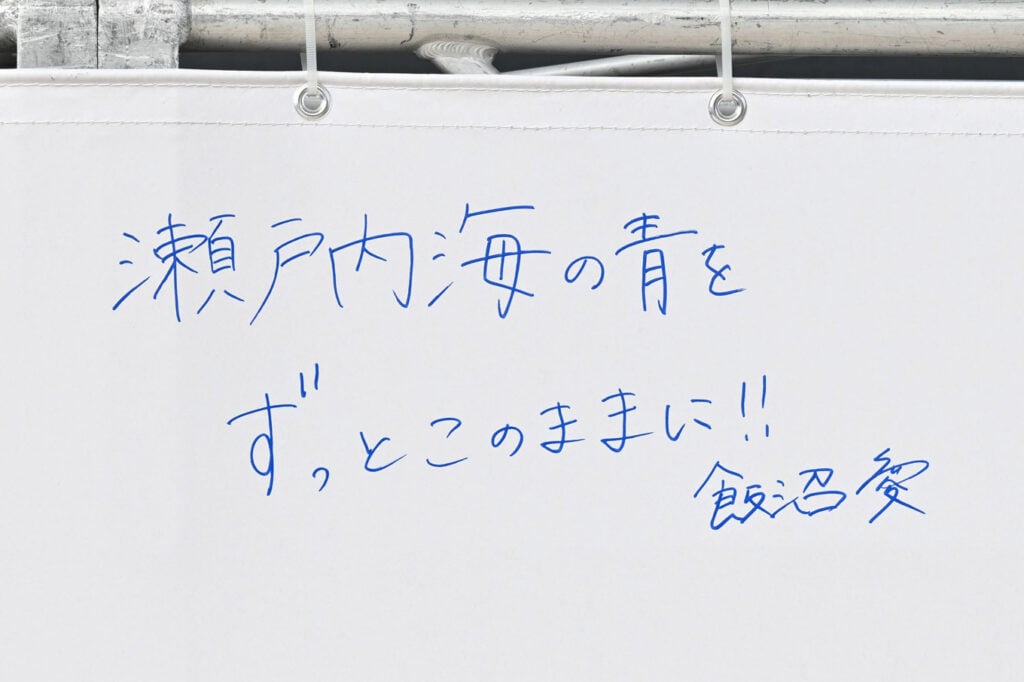 瀬戸内海の青を
ずっとこのままに!!
飯沼愛